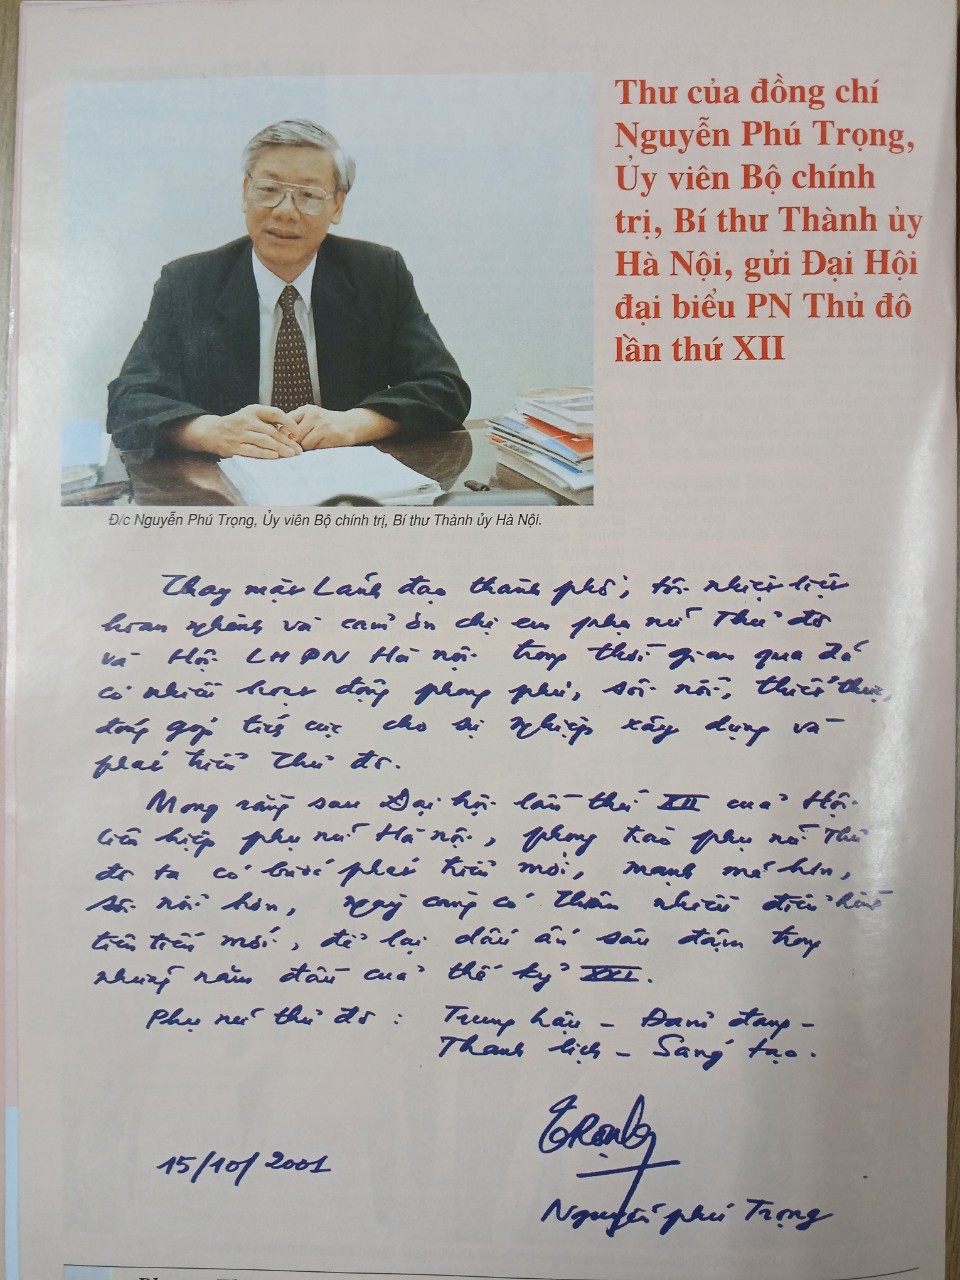 Thư của đồng chí
Nguyễn Phú Trọng,
Ủy viên Bộ chính
trị, Bí thư Thành ủy
Hà Nội, gửi Đại Hội
đại biểu PN Thủ đô
lần thứ XII
Đ/c Nguyễn Phú Trọng, Ủy viên Bộ chính trị, Bí thư Thành ủy Hà Nội.
Thay mặt Lãnh đạo thành phố, tôi nhiệt liệt
hoan nghênh và cảm ơn chị em phụ nữ Thủ đô
và Hội LHPN Hà Nội trong thời gian qua đã
có nhiều hoạt động phong phú, sôi nổi, thiết thực,
đóng góp tích cực cho sự nghiệp xây dựng và
phát triển Thủ đô.
Mong rằng sau Đại hội lần thứ XII của Hội
liên hiệp phụ nữ Hà Nội, phong trào phụ nữ Thủ
đô ta có bước phát triển mới, mạnh mẽ hơn,
sôi nổi hơn, ngày càng có thêm nhiều điển hình
tiên tiến mới, để lại dấu ấn sâu đậm trong
những năm đầu của thế kỷ XXI.
Phụ nữ thủ đô : Trung hậu - Đảm đang -
Thanh lịch - Sáng tạo.
Trọng
15/10/2001
Nguyễn Phú Trọng